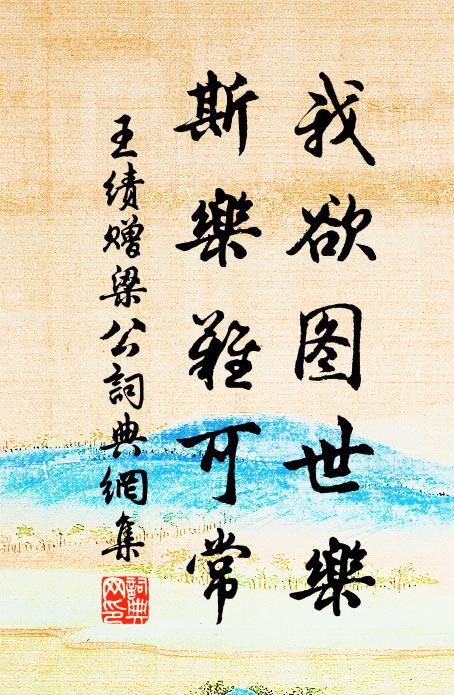 我欲图世樂
斯樂難可常
王绩贈梁公詞典網集
詞典